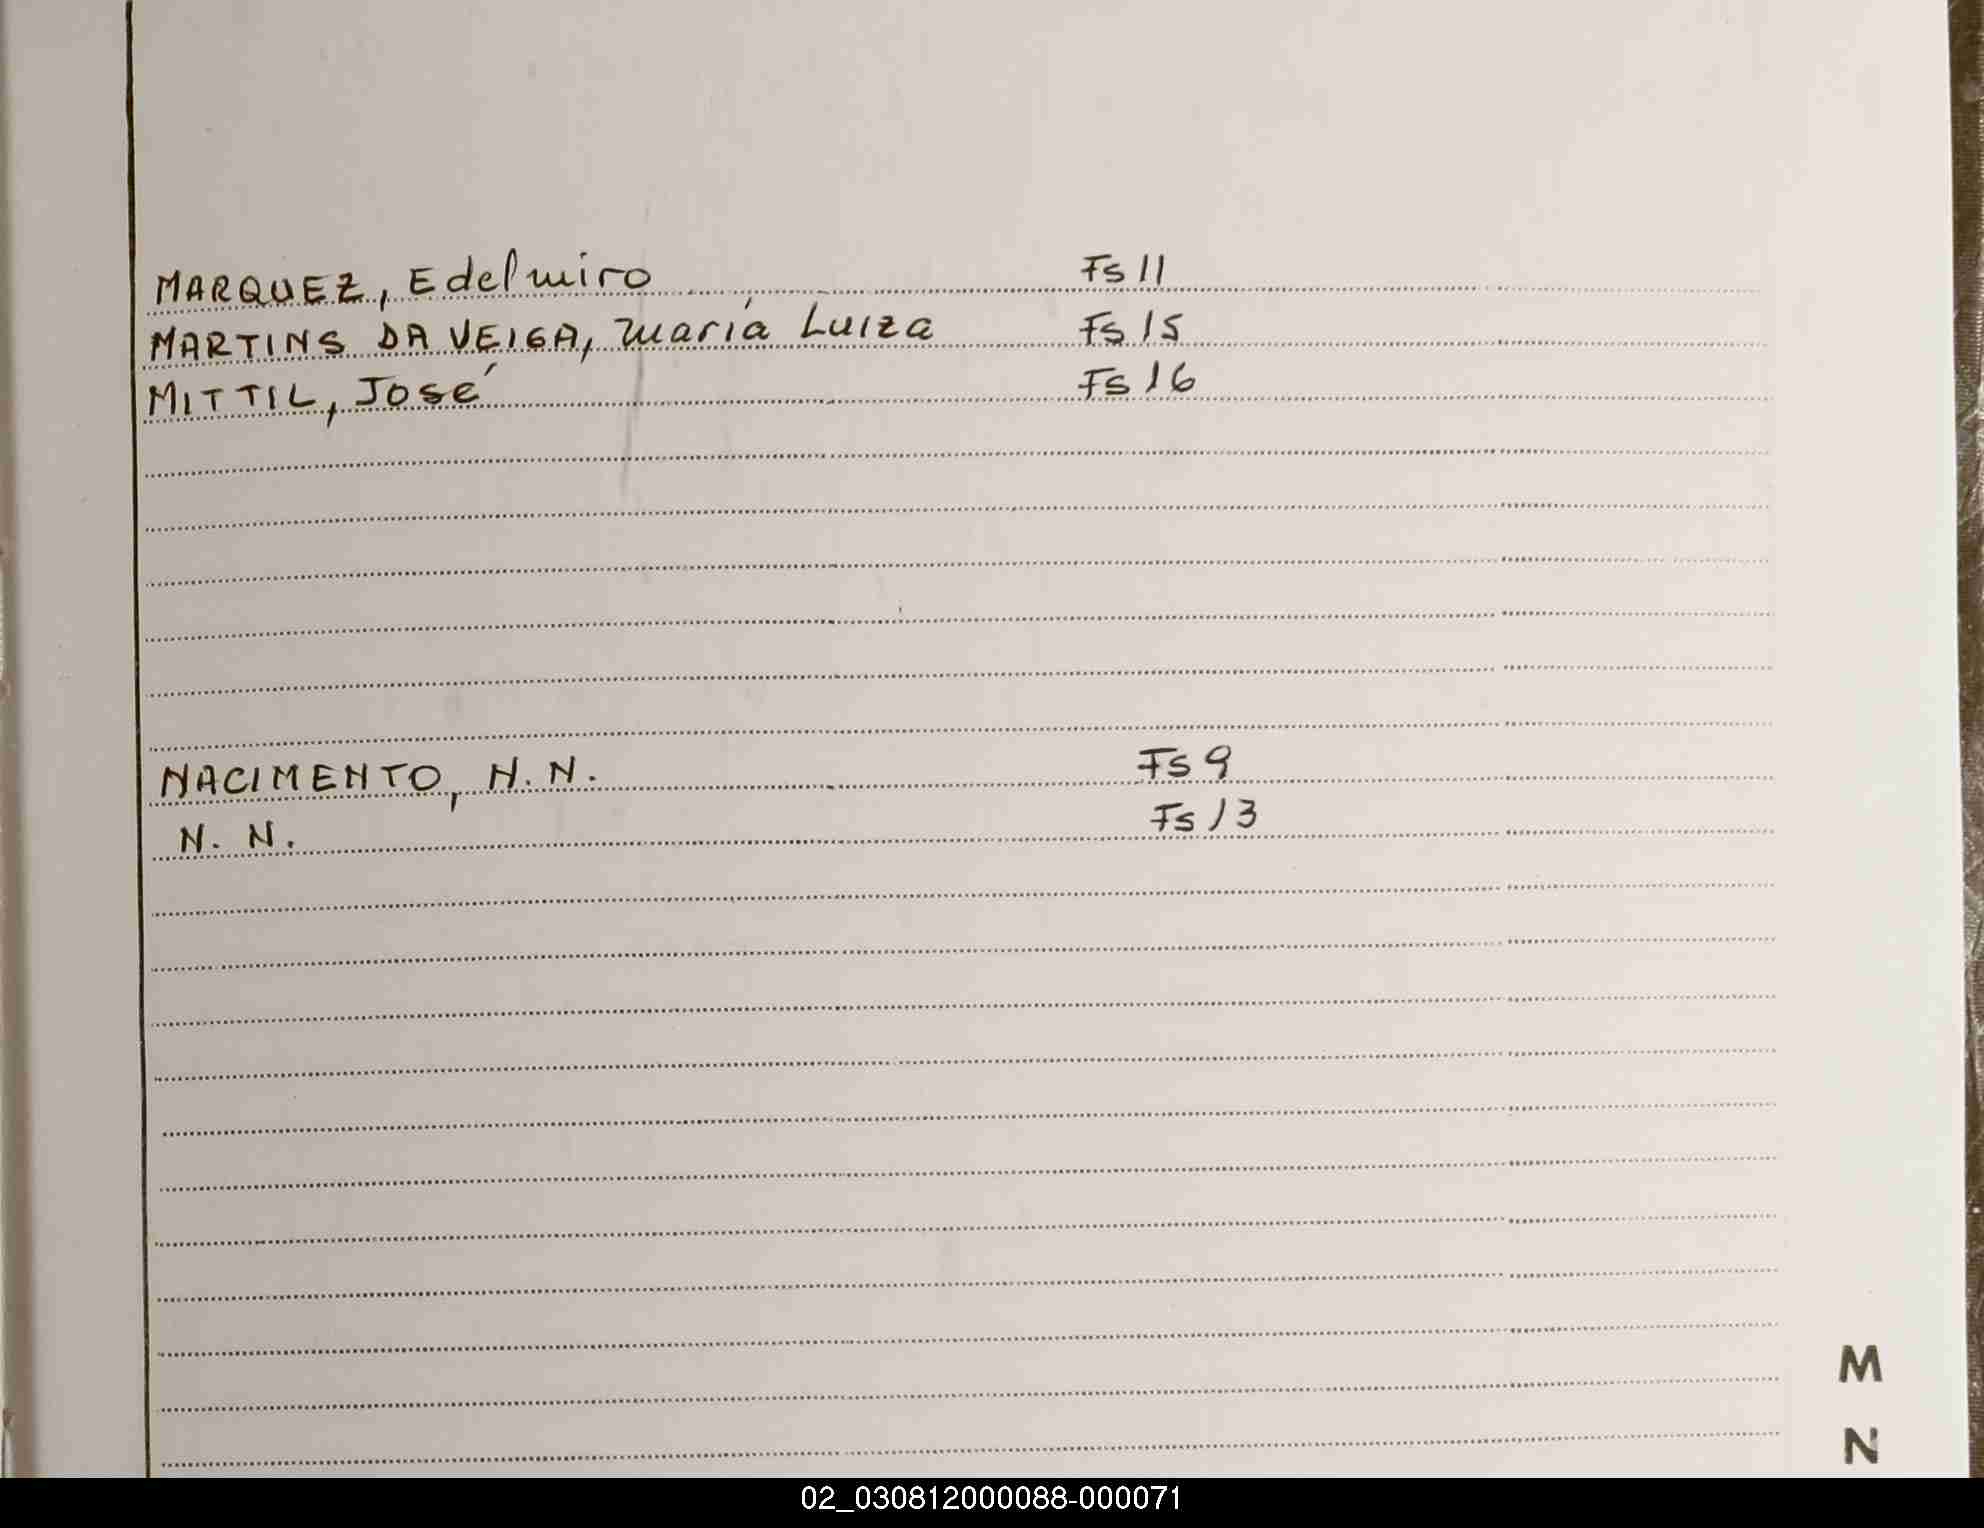 MARQUEZ, Edelmiro Fs 11
MARTINS DA VEIGA, María Luiza Fs 15
MITTIL, José Fs 16
NACIMENTO, N.N. Fs 9
N. N. Fs 13
M
N
02_030812000088-000071